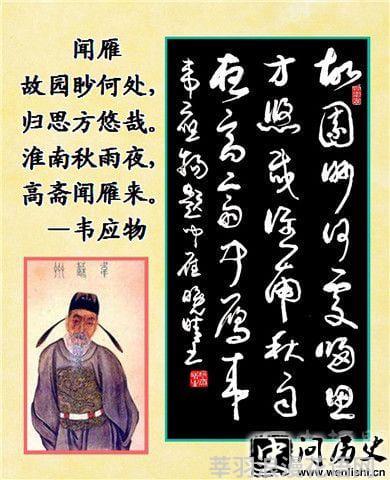 闻雁
故园眇何处,
归思方悠哉。
淮南秋雨夜,
高斋闻雁来。
—韦应物
故园眇何处归思
方悠哉淮南秋雨
夜高斋闻雁来
韦应物题闻雁
韋蘇州
问历史
www.wenlishi.cn